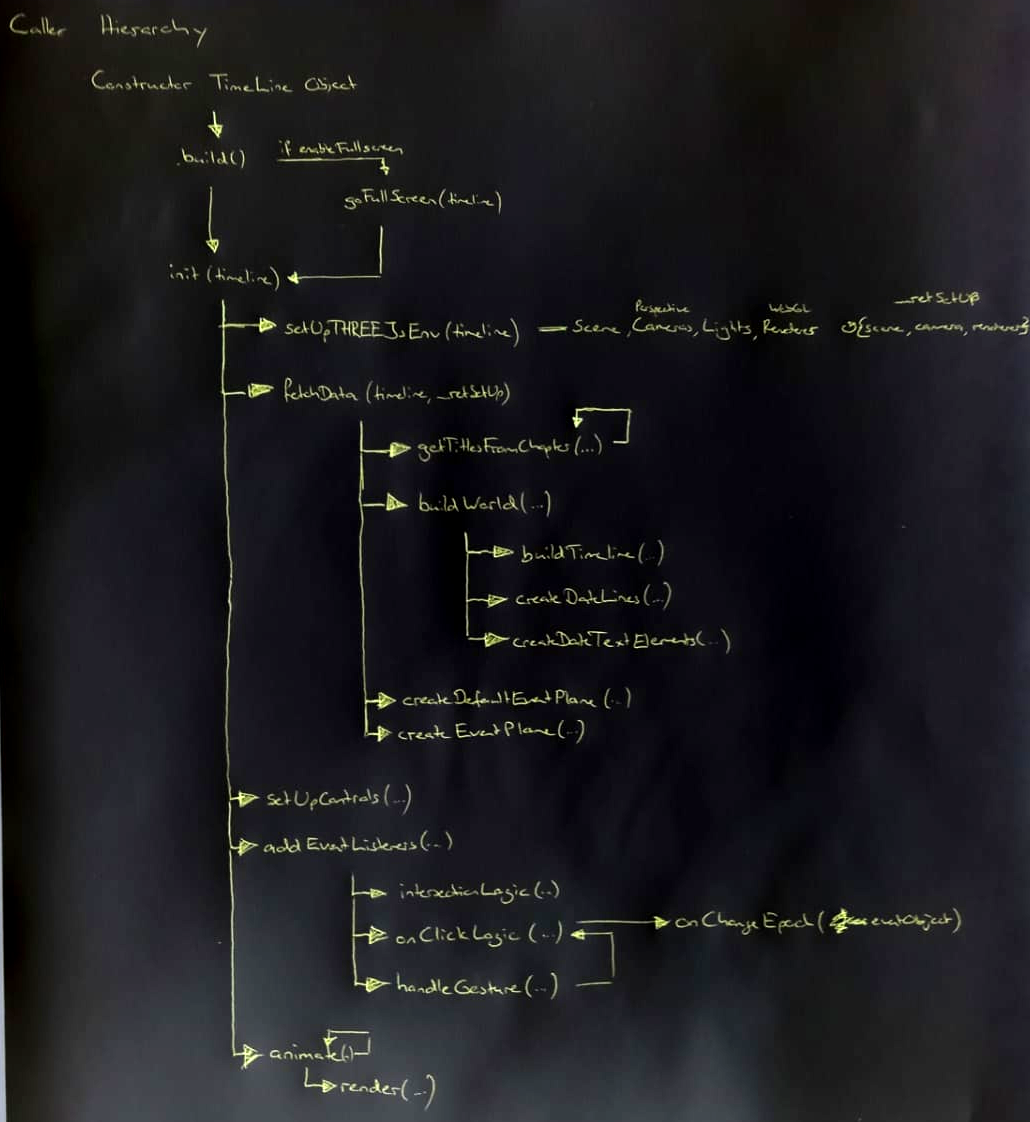 Caller Hierarchy
Constructor TimeLine Object
.build() if enableFullscreen
goFullScreen(timeline)
init(timeline)
Perspective WebGL _retSetUp
setUpTHREEJsEnv(timeline) — Scene, Cameras, Lights, Renderer {scene, camera, renderer}
fetchData (timeline, _retSetUp)
getTitlesFromChapter(...)
buildWorld(...)
buildTimeline(..)
createDateLines(...)
createDateTextElements(...)
createDefaultEventPlane (..)
createEventPlane(...)
setUpControls(...)
addEventListeners(...)
intersectionLogic(..)
onClickLogic (...) onChangeEpoch( eventObject)
handleGesture(...)
animate(.)
render(...)